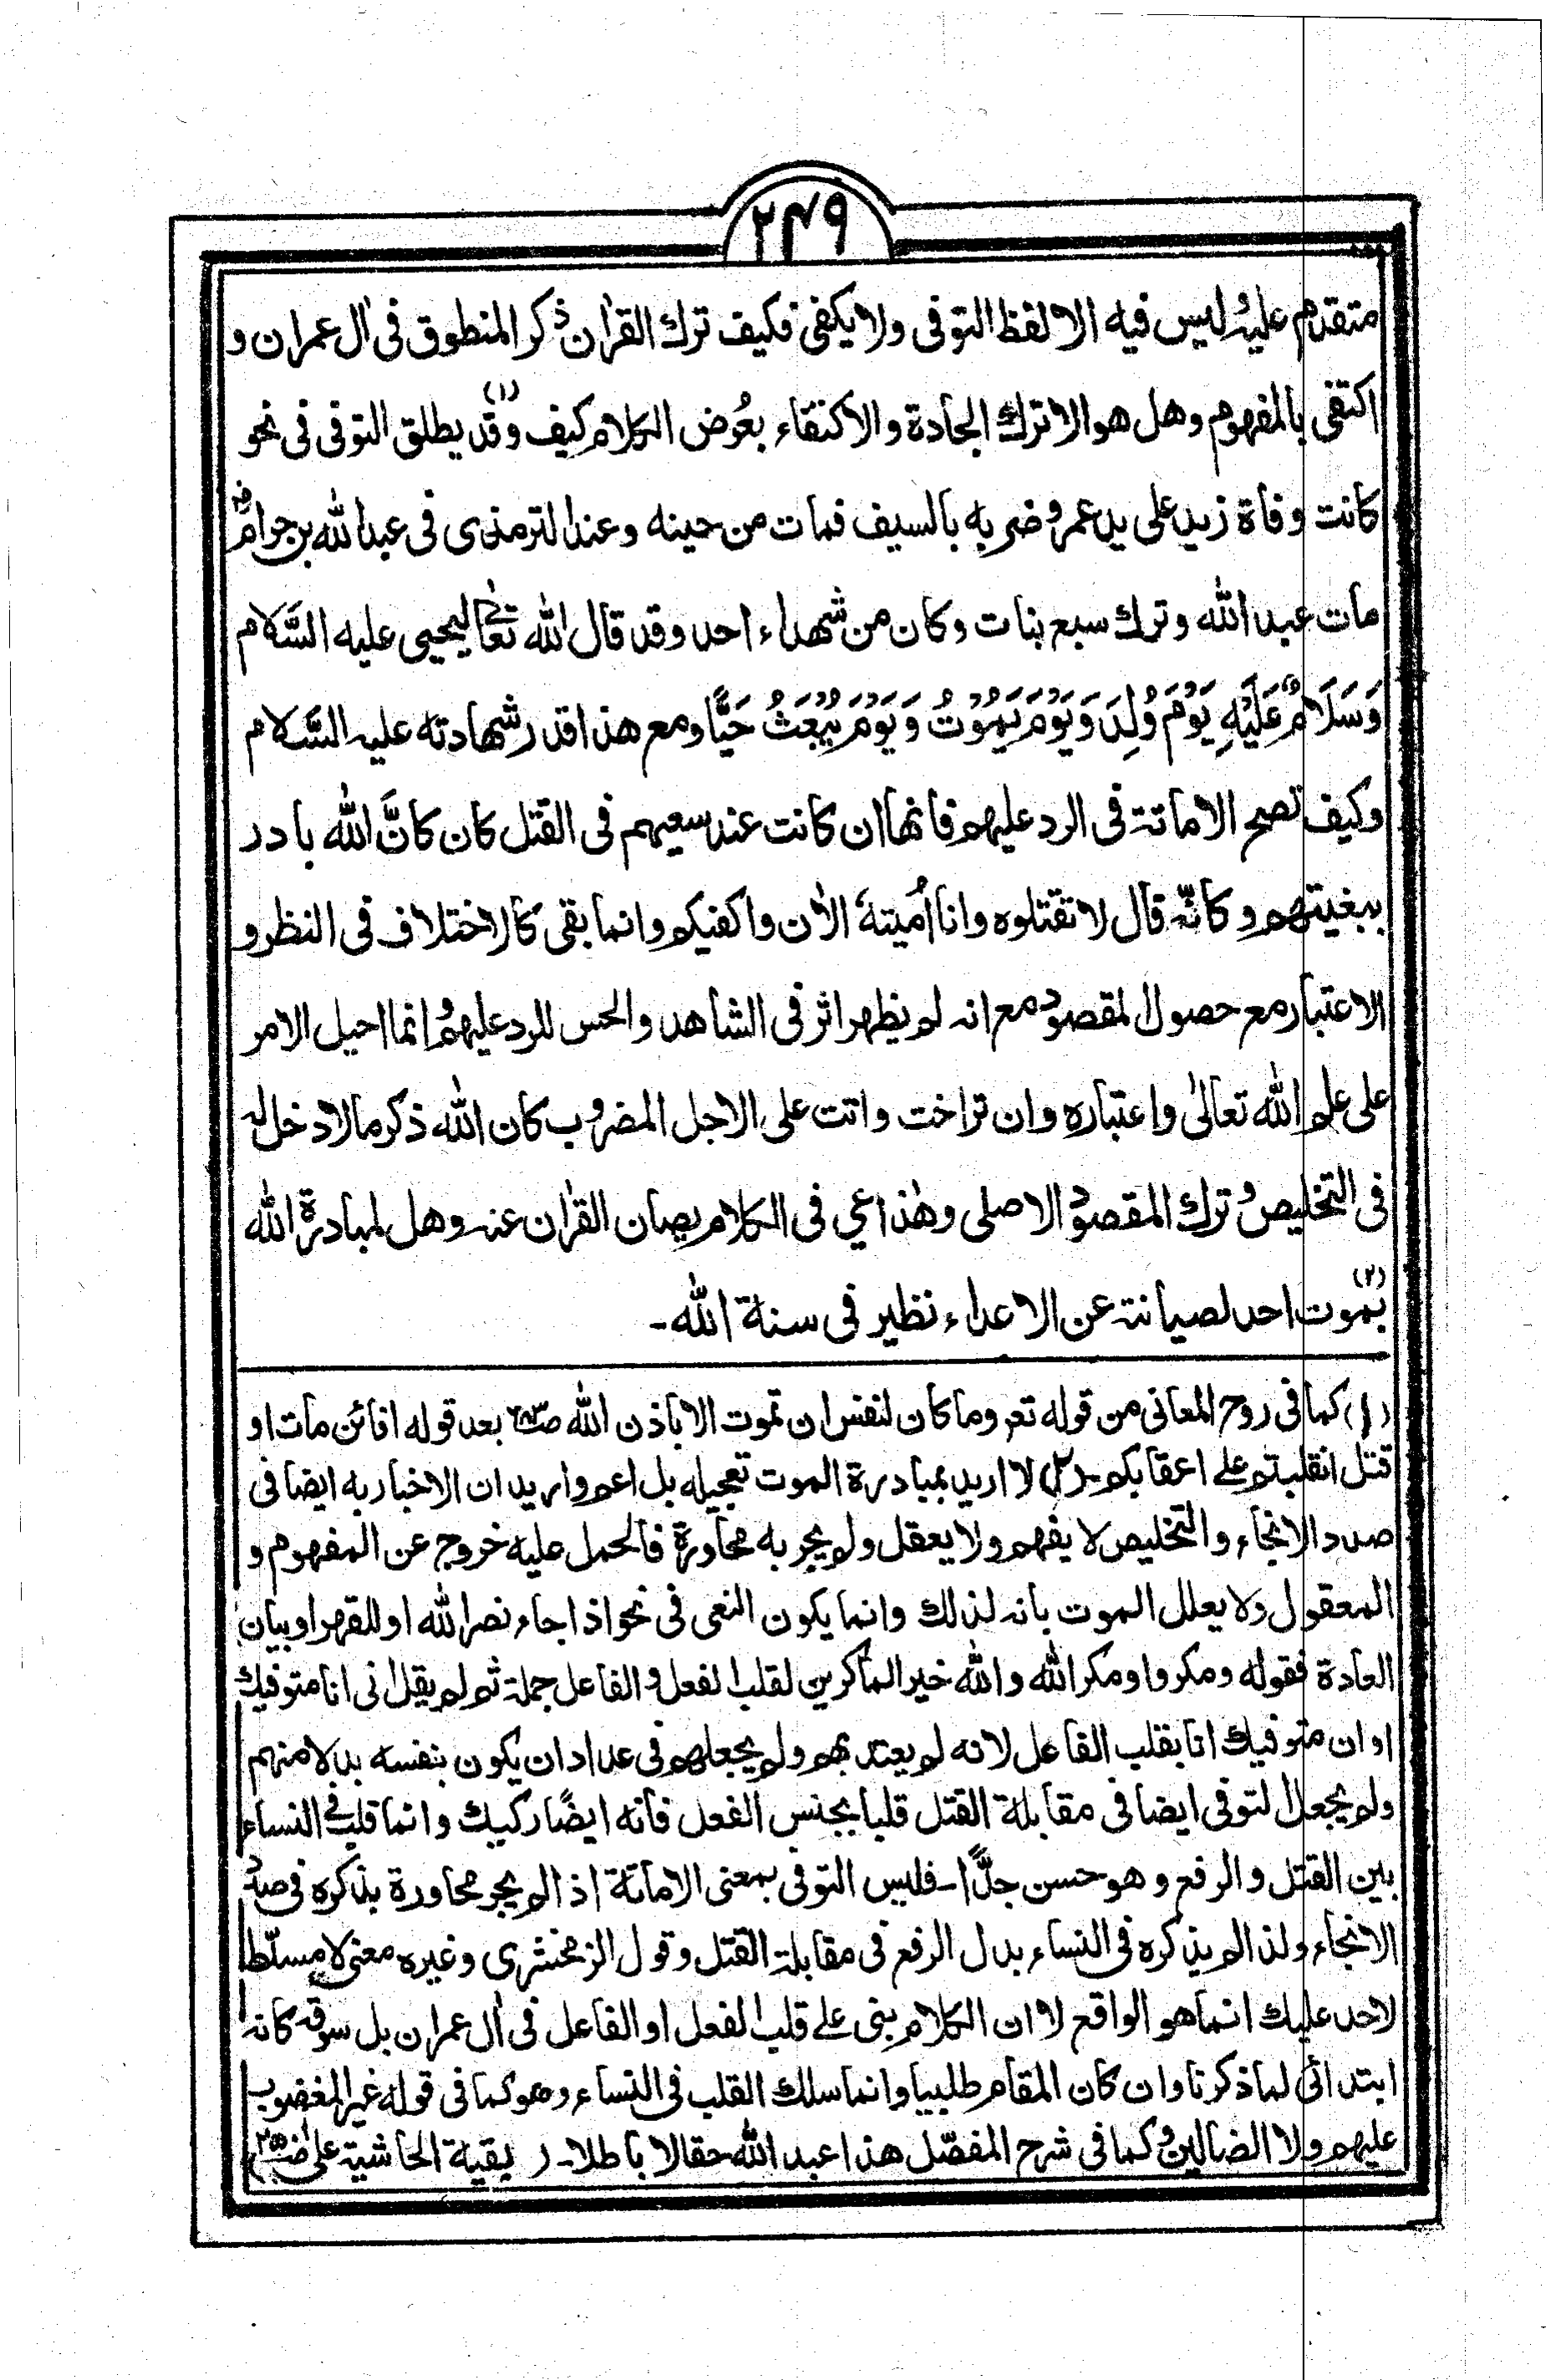 ۲۴۹
متقدم عليه ليس فيه الا لفظ التوفى ولا يكفى فكيف ترك القرآن ذكر المنطوق فى آل عمران و
اكتفى بالمفهوم وهل هو الا ترك الجادة والاكتفاء بعُرض الكلام كيف وقد(۱) يطلق التوفى فى نحو
كانت وفاة زيد على يد عمرو ضربه بالسيف فمات من حينه وعند الترمذى فى عبدالله بن حرام رض
مات عبد الله وترك سبع بنات وكان من شهداء احد وقد قال الله تعالى ليحيى عليه السَّلام
وَسَلَامٌ عَلَيْهِ يَوْمَ وُلِدَ وَيَوْمَ يَمُوْتُ وَيَوْمَ يُبْعَثُ حَيًّا ومع هذا قدر شهادته عليه السَّلام
وكيف تصح الاماتة فى الرد عليهم فانها ان كانت عند سعيهم فى القتل كان كانَّ الله بادر
ببغيتهم وكانّه قال لا تقتلوه وانا اُميتهٗ الآن واكفيكم وانما بقى كالاختلاف فى النظر و
الاعتبار مع حصول المقصود مع انه لم يظهر اثر فى الشاهد والحس للرد عليهم وانما احيل الامر
على علم الله تعالىٰ واعتباره وان تراخت واتت على الاجل المضروب كان الله ذكر ما لا دخل له
فى التخليص وترك المقصود الاصلى وهٰذا عي فى الكلام يصان القرآن عنه وهل لمبادرة الله
بموت(۲) احد لصيانته عن الاعداء نظير فى سنة الله۔
(۱) كما فى روح المعانى من قوله تعـ وما كان لنفس ان تموت الا باذن الله بعد قوله افائن مات او
قتل انقلبتم على اعقابكم۔ (۲) لا اريد بمبادرة الموت تعجيله بل اعم واريد ان الاخبار به ايضا فى
صدد الانجاء والتخليص لا يفهم ولا يعقل ولم يجر به محاورة فالحمل عليه خروج عن المفهوم و
المعقول ولا يعلل الموت بانه لذلك وانما يكون النعى فى نحو اذا جاء نصر الله او للقهر او بيان
العادة فقوله ومكروا ومكر الله والله خير الماكرين لقلب الفعل والفاعل جملة ثم لم يقل انى انا متوفيك
او ان متوفيك انا بقلب الفاعل لانه لم يعتد بهم ولم يجعلهم فى عداد ان يكون بنفسه بدلا منهم
ولم يجعل التوفى ايضا فى مقابلة القتل قلبا بجنس الفعل فانه ايضًا ركيك وانما قلب فى النساء
بين القتل والرفع وهو حسن جدًّا۔ فليس التوفى بمعنى الاماتة اذ لم يجر محاورة بذكره فى صدد
الانجاء ولذا لم يذكره فى النساء بدل الرفع فى مقابلة القتل وقول الزمخشرى وغيره معنى لا مسلّطا
لاحد عليك انما هو الواقع لا ان الكلام بنى على قلب الفعل او الفاعل فى آل عمران بل سوقه كانه
ابتدائى لما ذكرنا وان كان المقام طلبيا وانما سلك القلب فى النساء وهو كما فى قوله غير المغضوب
عليهم ولا الضالين وكما فى شرح المفصّل هذا عبد الله حقا لا باطلا۔ (بقية الحاشية على ص۲۵۰)